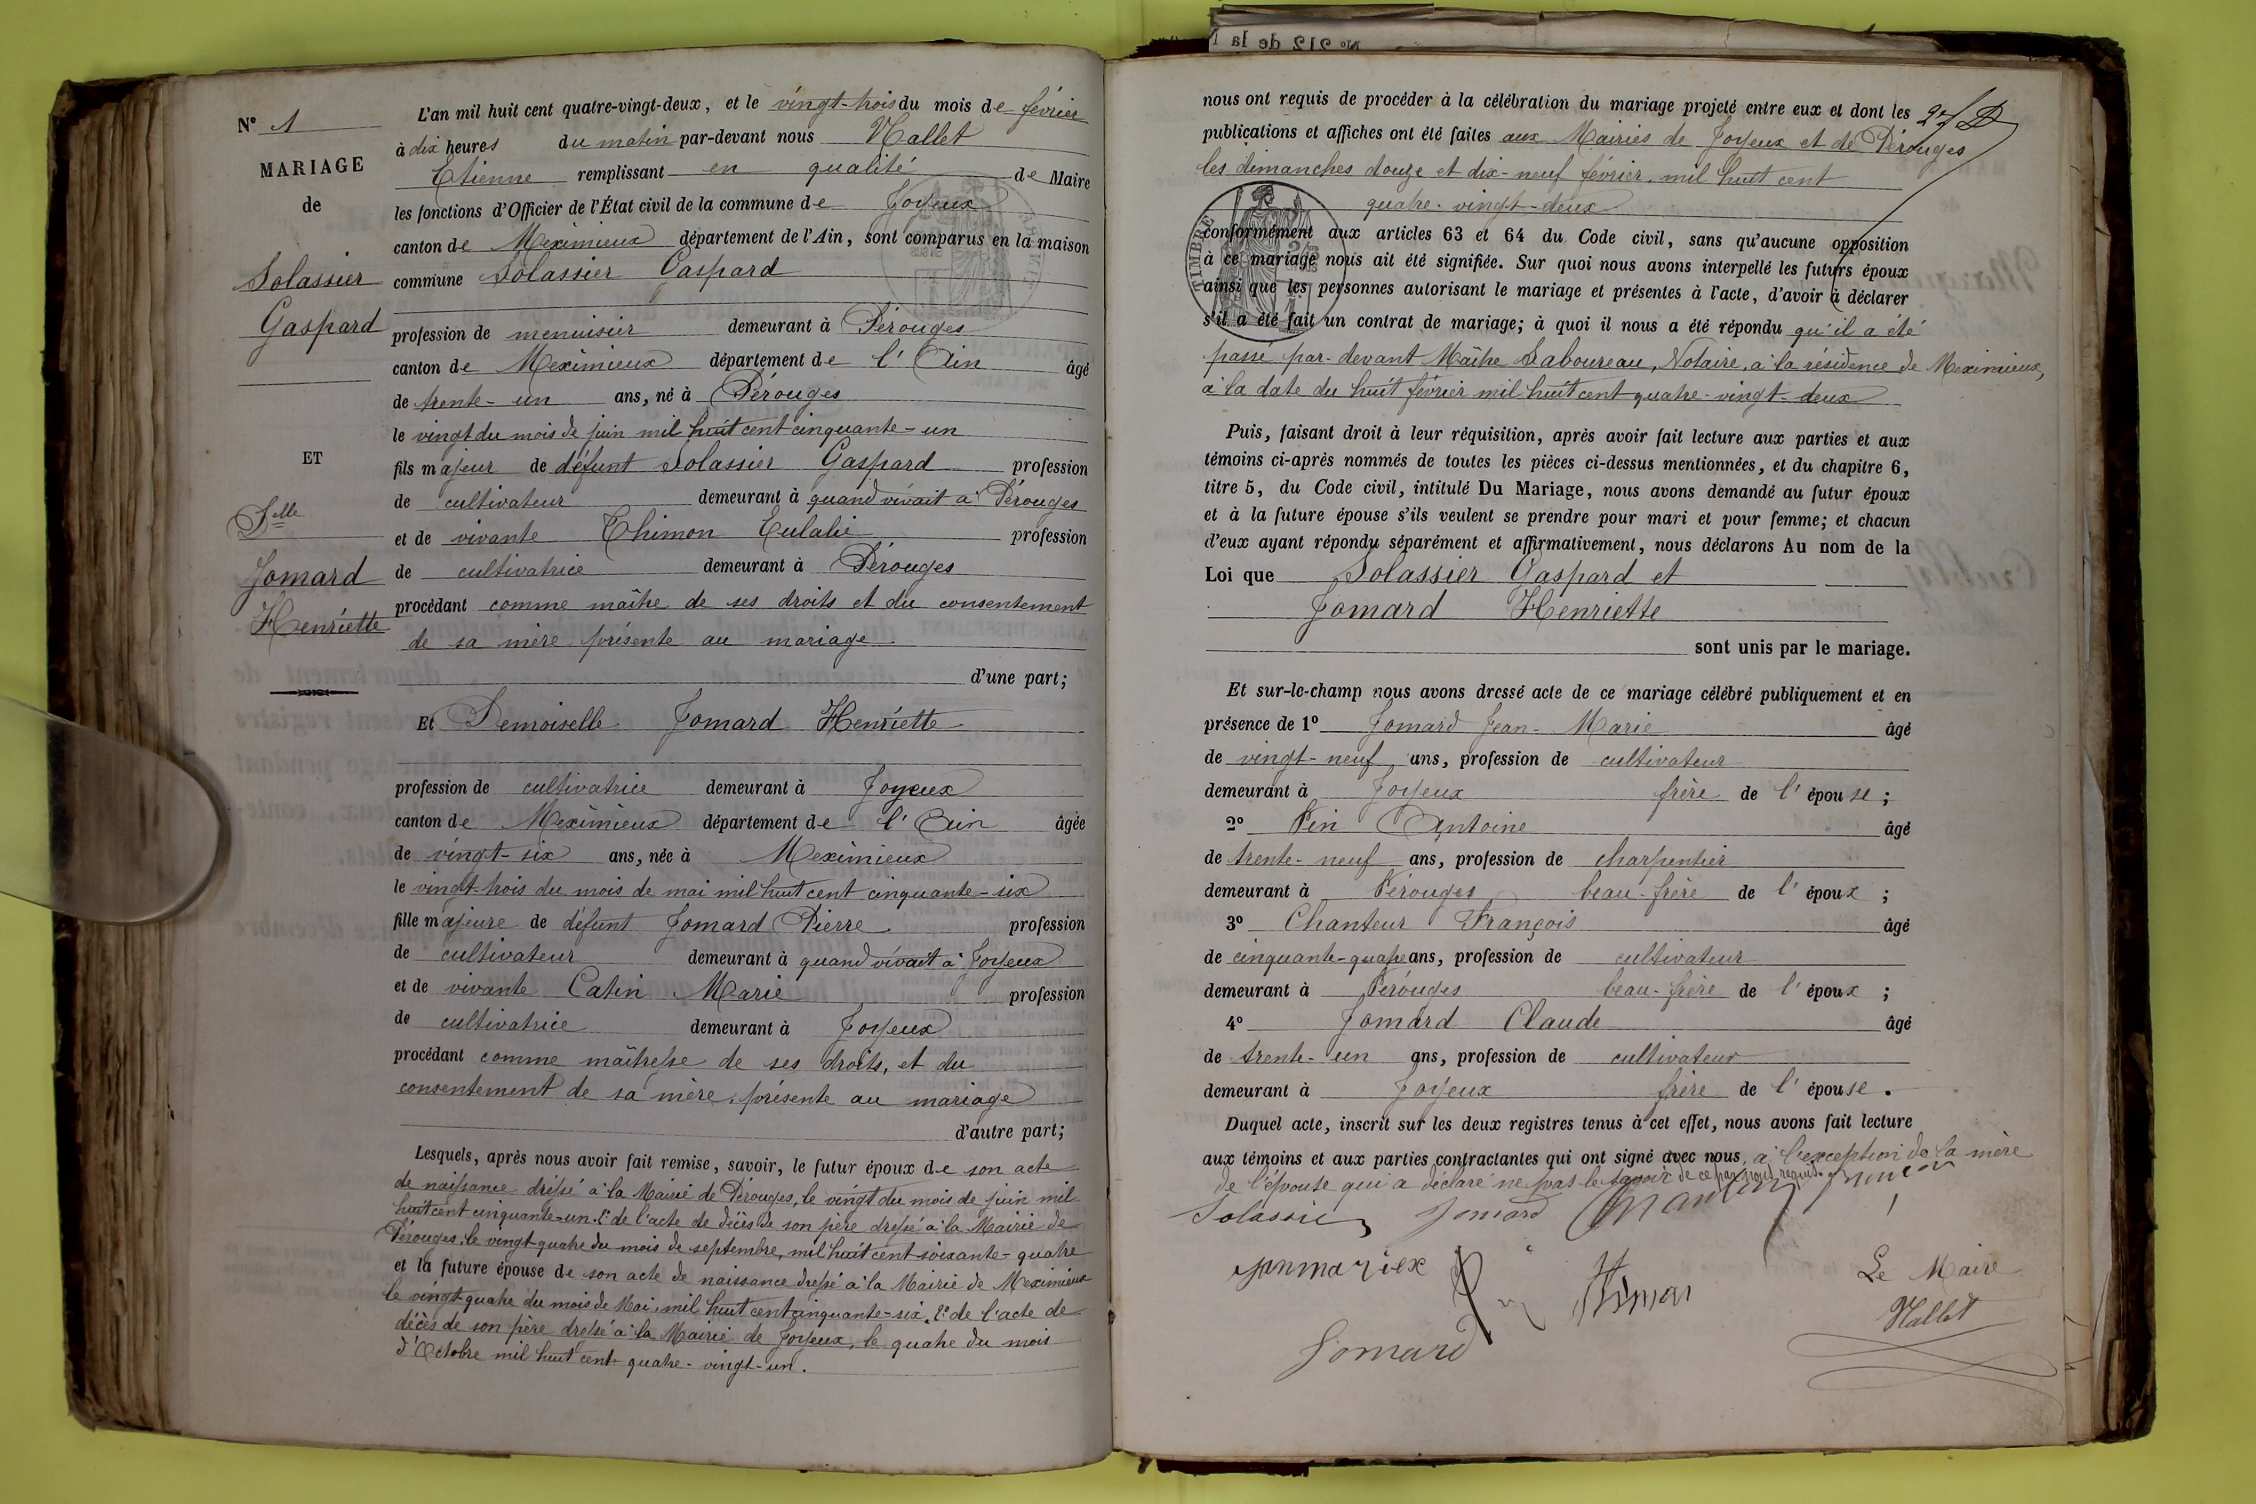 N° 1
MARIAGE
de
Solassier
Gaspard
ET
Delle
Jomard
Henriette
L'an mil huit cent quatre-vingt-deux, et le vingt-trois du mois de février
à dix heures du matin par-devant nous Vallet
Etienne remplissant en qualité de Maire
les fonctions d'Officier de l'État civil de la commune de Joyeux
canton de Meximieux département de l'Ain, sont comparus en la maison
commune Solassier Gaspard
profession de menuisier demeurant à Pérouges
canton de Meximieux département de l'Ain âgé
de trente-un ans, né à Pérouges
le vingt du mois de juin mil huit cent cinquante-un
fils majeur de défunt Solassier Gaspard profession
de cultivateur demeurant à quand vivait à Pérouges
et de vivante Thimon Eulalie profession
de cultivatrice demeurant à Pérouges
procédant comme maître de ses droits et du consentement
de sa mère présente au mariage
d'une part;
Et Demoiselle Jomard Henriette
profession de cultivatrice demeurant à Joyeux
canton de Meximieux département de l'Ain âgée
de vingt-six ans, née à Meximieux
le vingt-trois du mois de mai mil huit cent cinquante-six
fille majeure de défunt Jomard Pierre profession
de cultivateur demeurant à quand vivait à Joyeux
et de vivante Catin Marie profession
de cultivatrice demeurant à Joyeux
procédant comme maîtresse de ses droits, et du
consentement de sa mère, présente au mariage
d'autre part;
Lesquels, après nous avoir fait remise, savoir, le futur époux de son acte
de naissance dressé à la Mairie de Pérouges, le vingt du mois de juin mil
huit cent cinquante-un. 2° de l'acte de décès de son père dressé à la Mairie de
Pérouges, le vingt-quatre du mois de septembre, mil huit cent soixante-quatre
et la future épouse de son acte de naissance dressé à la Mairie de Meximieux
le vingt-quatre du mois de Mai, mil huit cent cinquante-six. 2° de l'acte de
décès de son père dressé à la Mairie de Joyeux, le quatre du mois
d'Octobre mil huit cent quatre-vingt-un.
N° 212 de la
nous ont requis de procéder à la célébration du mariage projeté entre eux et dont les
publications et affiches ont été faites aux Mairies de Joyeux et de Pérouges
les dimanches douze et dix-neuf février, mil huit cent
quatre-vingt-deux
TIMBRE
conformément aux articles 63 et 64 du Code civil, sans qu'aucune opposition
à ce mariage nous ait été signifiée. Sur quoi nous avons interpellé les futurs époux
ainsi que les personnes autorisant le mariage et présentes à l'acte, d'avoir à déclarer
s'il a été fait un contrat de mariage; à quoi il nous a été répondu qu'il a été
passé par-devant Maître Laboureau, Notaire, à la résidence de Meximieux,
à la date du huit février mil huit cent quatre-vingt-deux
Puis, faisant droit à leur réquisition, après avoir fait lecture aux parties et aux
témoins ci-après nommés de toutes les pièces ci-dessus mentionnées, et du chapitre 6,
titre 5, du Code civil, intitulé Du Mariage, nous avons demandé au futur époux
et à la future épouse s'ils veulent se prendre pour mari et pour femme; et chacun
d'eux ayant répondu séparément et affirmativement, nous déclarons Au nom de la
Loi que Solassier Gaspard et
Jomard Henriette
sont unis par le mariage.
Et sur-le-champ nous avons dressé acte de ce mariage célébré publiquement et en
présence de 1° Jomard Jean-Marie âgé
de vingt-neuf ans, profession de cultivateur
demeurant à Joyeux frère de l'épouse;
2° Pin Antoine âgé
de trente-neuf ans, profession de charpentier
demeurant à Pérouges beau-frère de l'époux;
3° Chanteur François âgé
de cinquante-quatre ans, profession de cultivateur
demeurant à Pérouges beau-frère de l'époux;
4° Jomard Claude âgé
de trente-un ans, profession de cultivateur
demeurant à Joyeux frère de l'épouse.
Duquel acte, inscrit sur les deux registres tenus à cet effet, nous avons fait lecture
aux témoins et aux parties contractantes qui ont signé avec nous, à l'exception de la mère
de l'épouse qui a déclaré ne pas le savoir de ce par nous requise
Solassier Jomard
Le Maire
Jomard Vallet